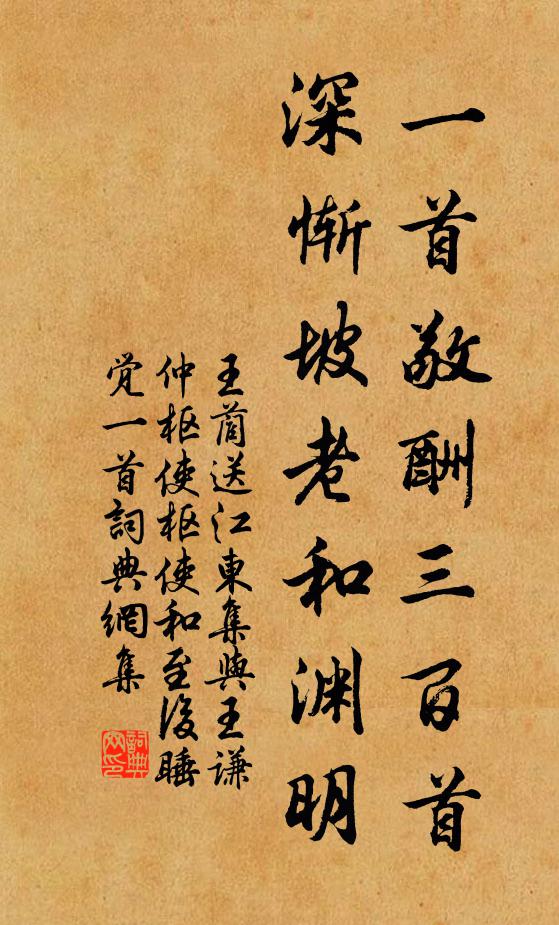 一首敬酬三百首
深惭坡老和渊明
王蔺送江東集與王谦
仲枢使枢使和至後睡
觉一首詞典網集
詞典
网印